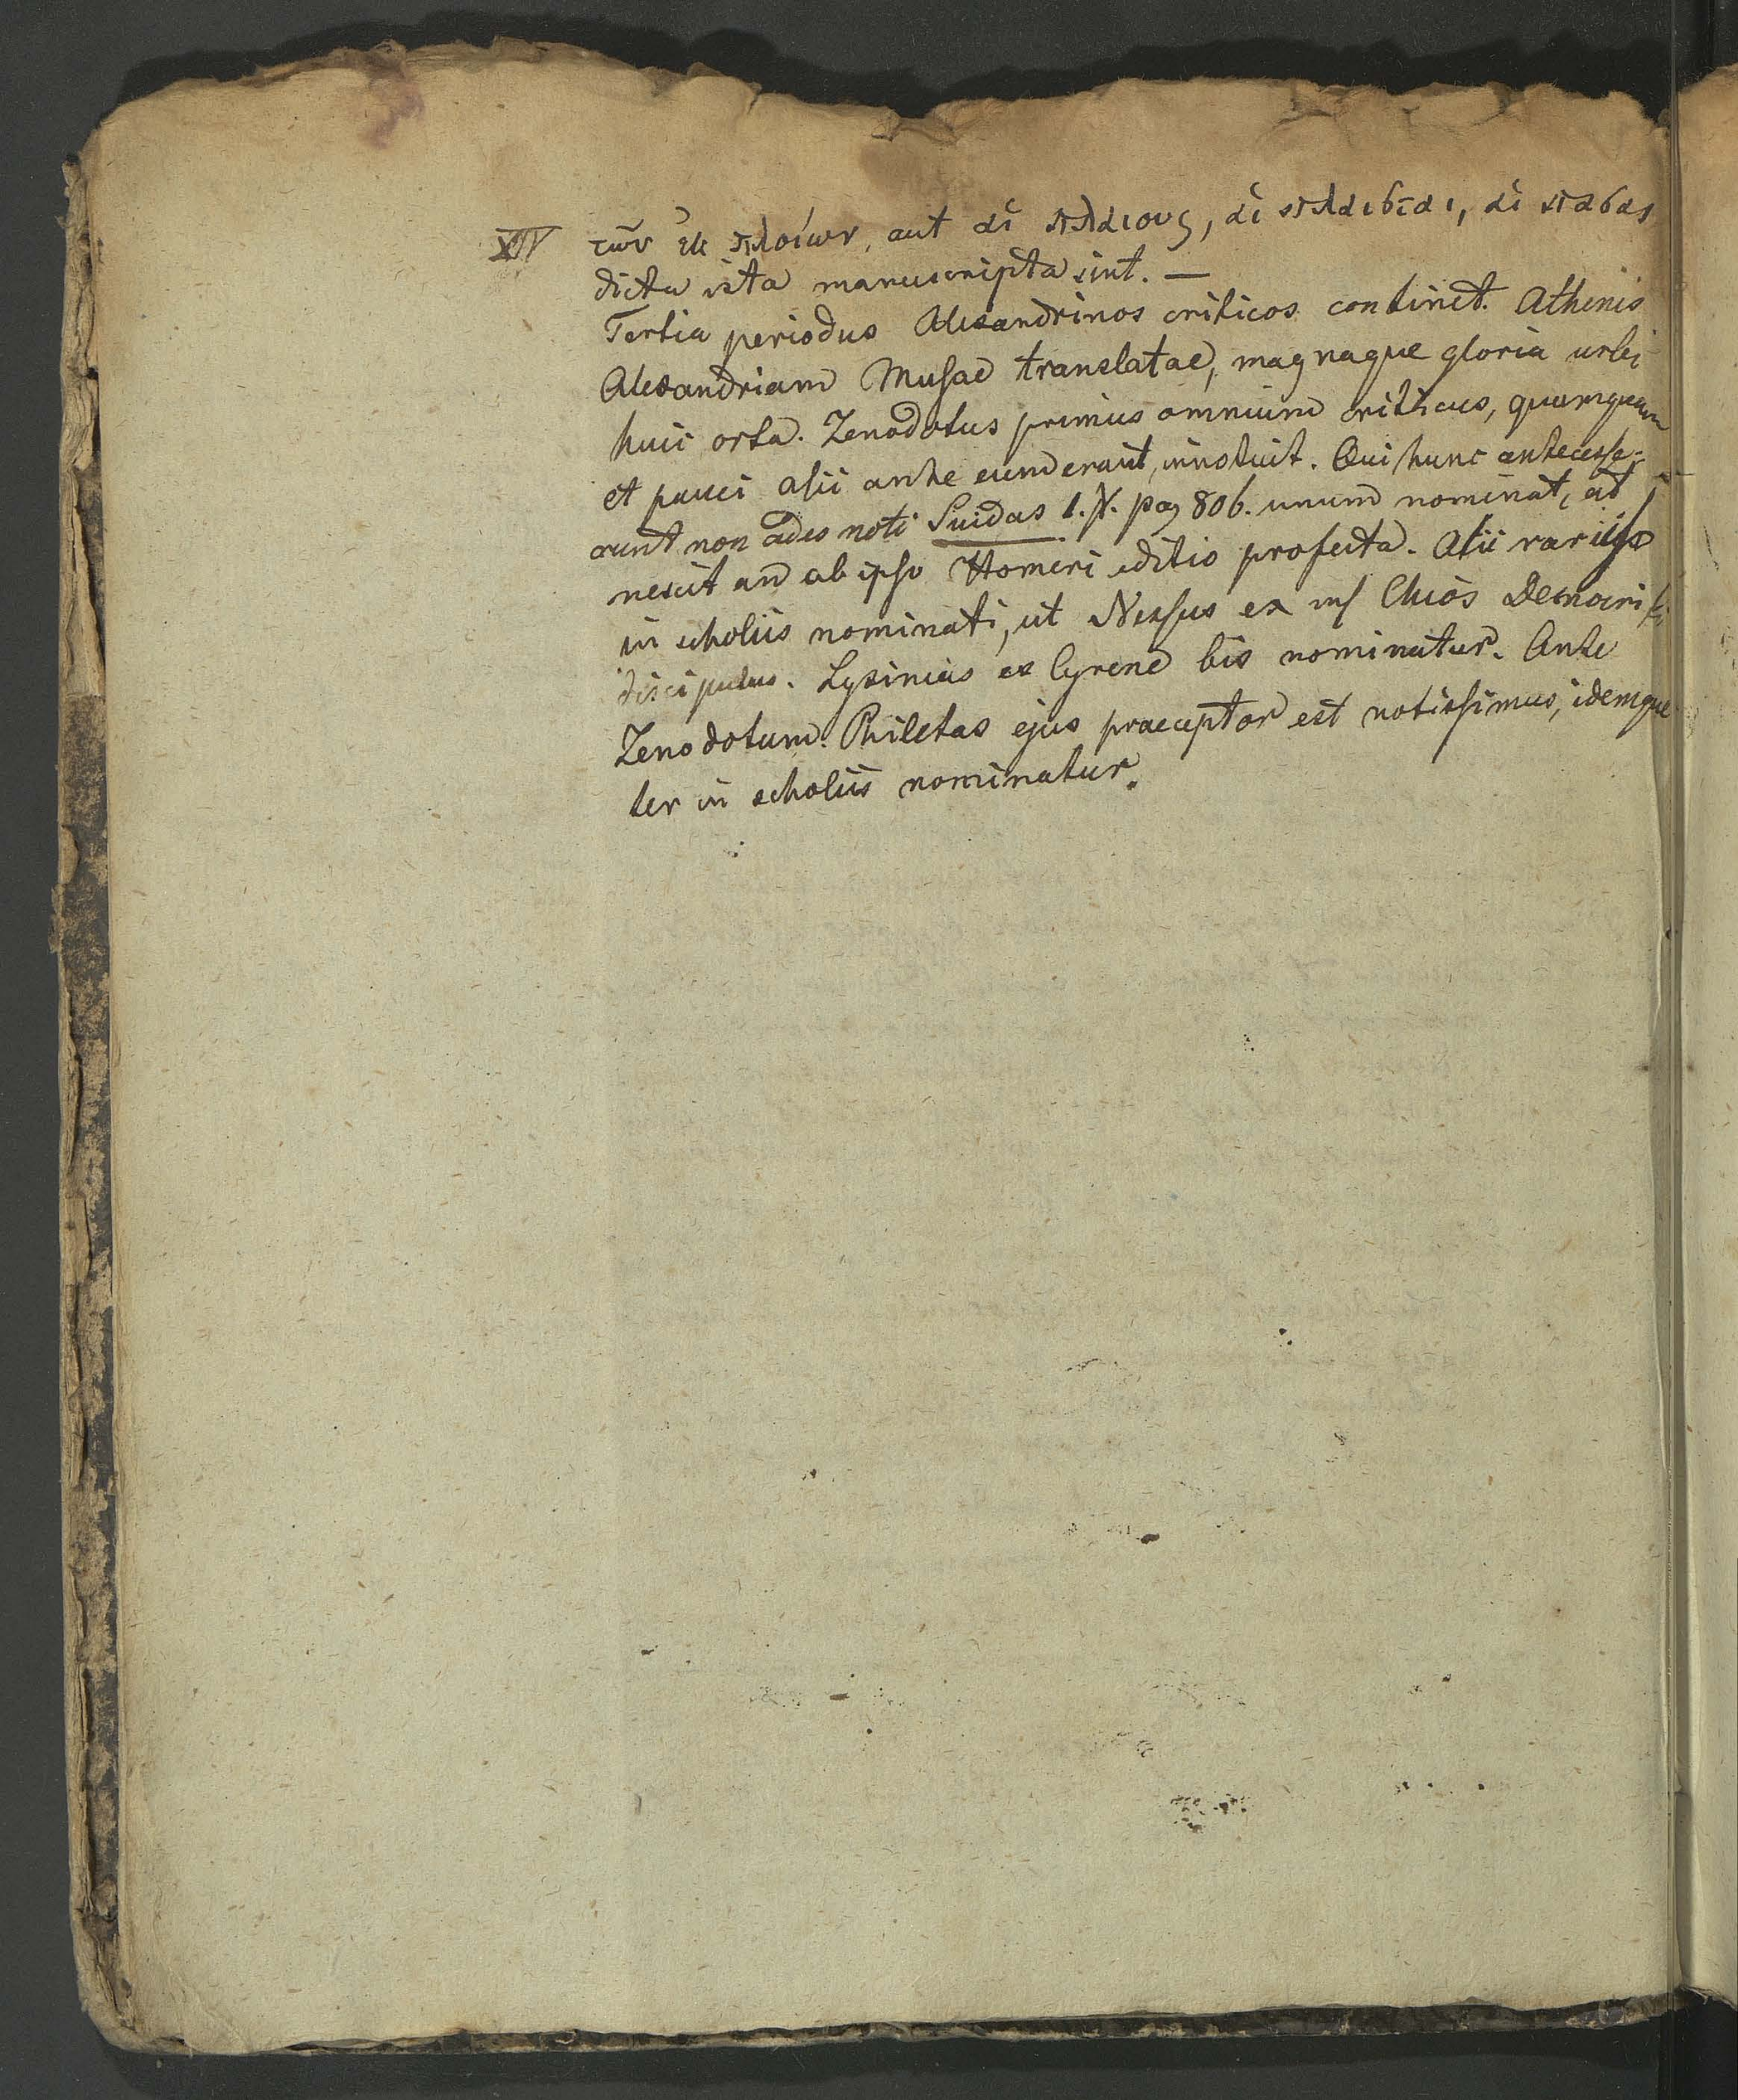 XIV τῶν ἐκ πλοίων, aut αἱ πλαιους, αἱ πλαισται, αἱ πασαι
dicta ista manuscripta sint. —
Tertia periodus Alexandrinos criticos continet. Athenis
Alexandriam Musae translatae, magnaque gloria urbi
huic orta. Zenodotus primus omnium criticus, quamquam
et pauci alii ante eum erant, innotuit. Qui hunc antecesse-
runt non adeo noti Suidas pag 806. unum nominat, at
nescit an ab ipso Homeri editio profecta. Alii rarius
in scholiis nominati, ut Nessus ex Chios Democriti
discipulus. Lysinias ex Cyrene bis nominatur. Ante
Zenodotum Philetas ejus praeceptor est notissimus, idemque
ter in scholiis nominatur.